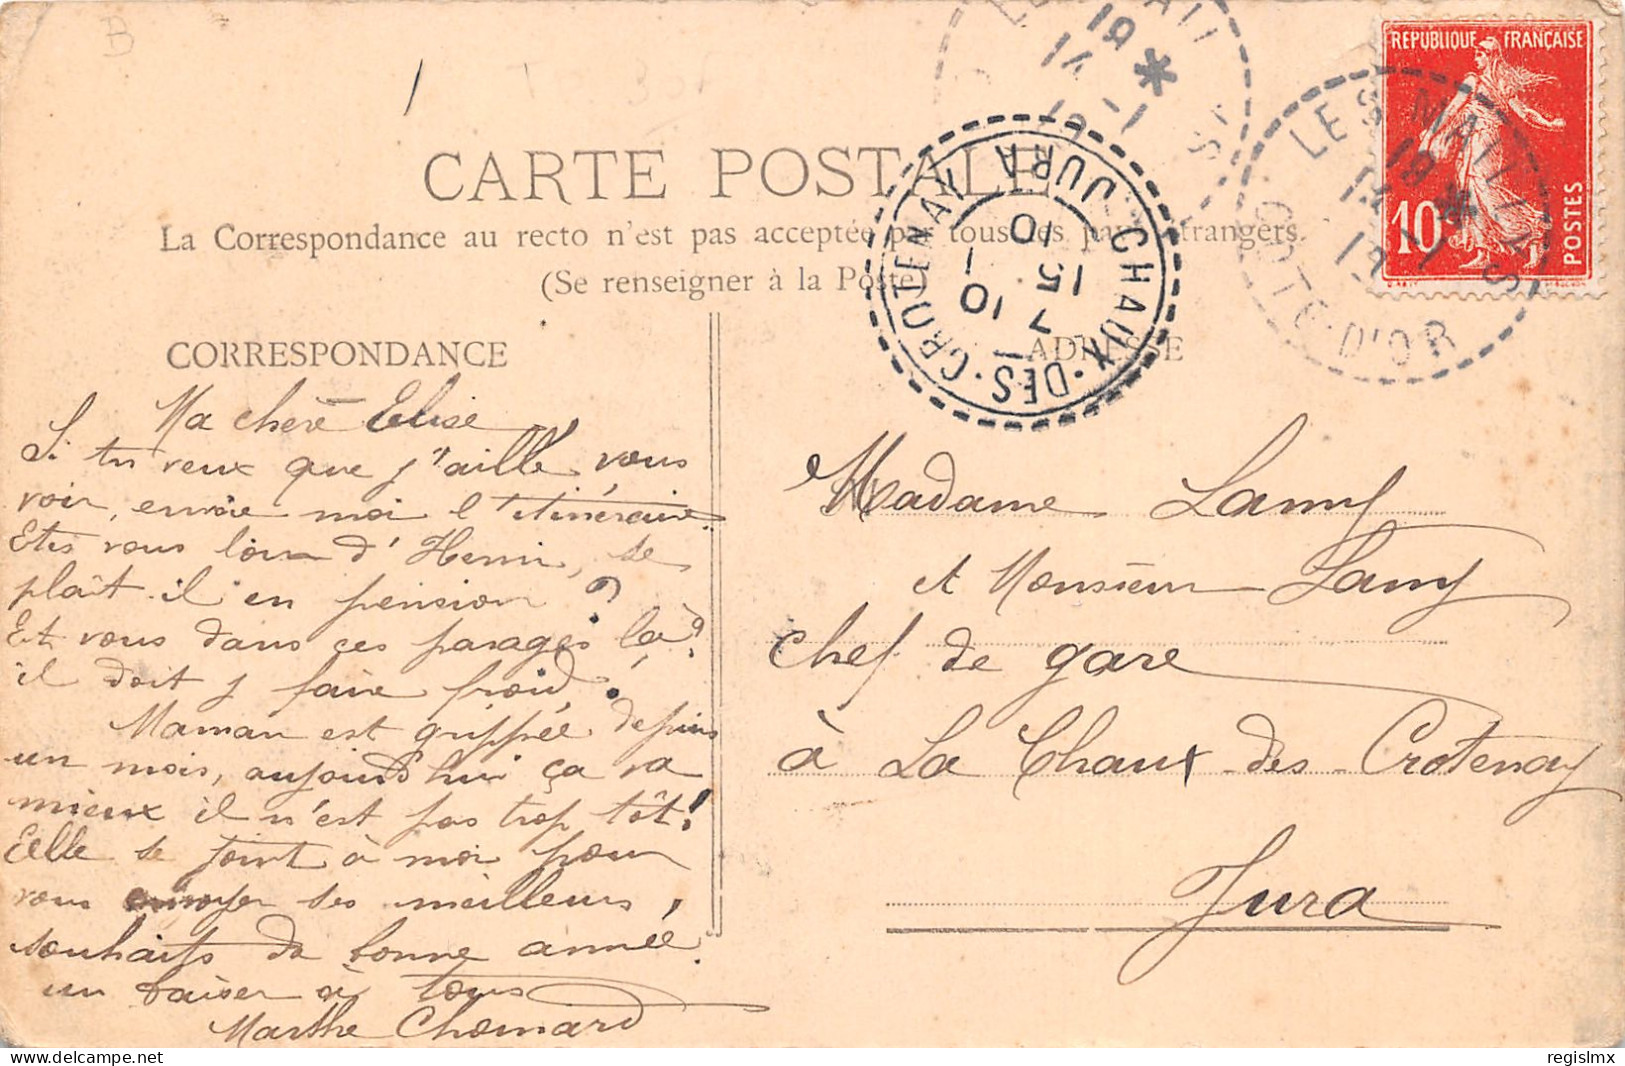 B
CARTE POSTALE
La Correspondance au recto n'est pas acceptée par tous les pays étrangers.
(Se renseigner à la Poste)
CORRESPONDANCE
ADRESSE
REPUBLIQUE FRANÇAISE
10
POSTES
CHAUX-DES-CROTENAY
JURA
10
15
7 - 1
10
CÔTE-D'OR
Ma chère Elise
Si tu veux que j'aille vous
voir, envoie moi l'itinéraire.
Etes vous loin d'Henri, se
plaît-il en pension ?
Et vous dans ces parages là ?
il doit y faire froid.
Maman est grippée depuis
un mois, aujourd'hui ça va
mieux il n'est pas trop tôt !
Elle se joint à moi pour
vous envoyer ses meilleurs,
souhaits de bonne année.
un baiser à tous
Marthe Chomard
Madame Lamy
et Monsieur Lamy
Chef de gare
à La Chaux-des-Crotenay
Jura
regislmx